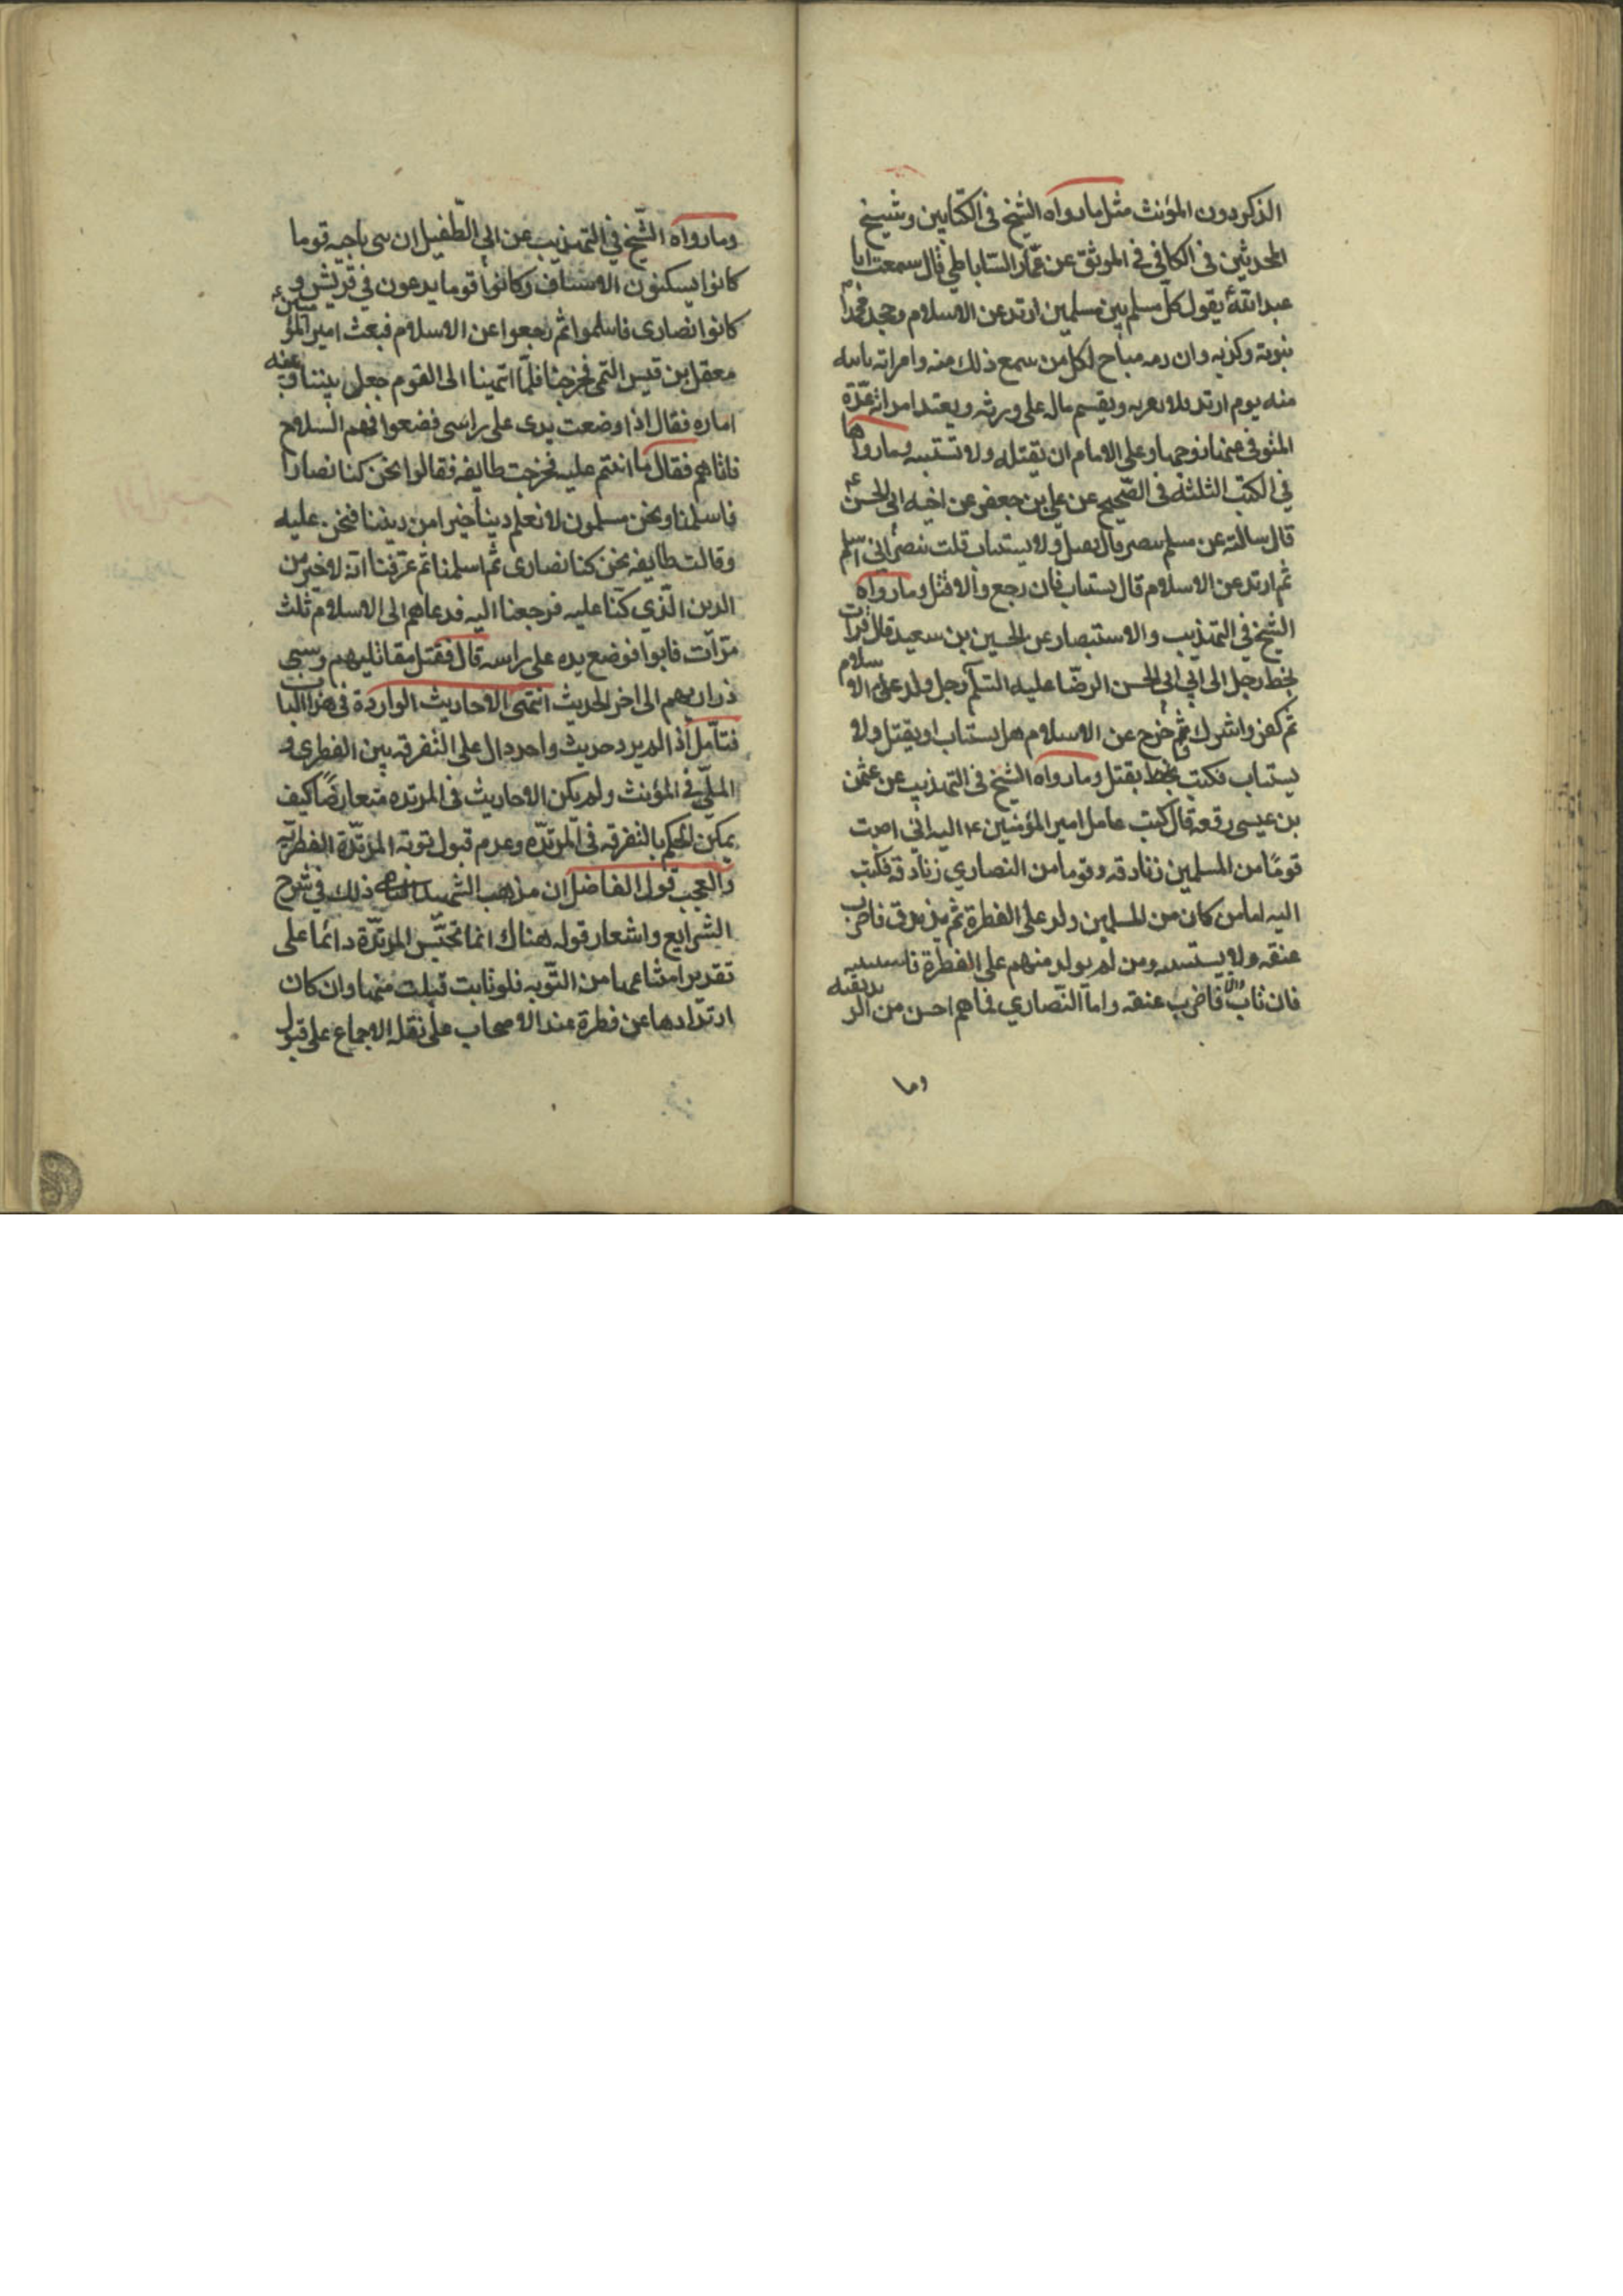 الذكر دون المؤنث مثل ما رواه الشيخ في الكتابين وشيخ
المحدثين في الكافي في الموثق عن عمّار الساباطي قال سمعت ابا
عبد الله ع يقول كلّ مسلم بين مسلمين ارتد عن الاسلام وجحد محمدا
نبوته وكذبه وان دمه مباح لكل من سمع ذلك منه وامراته باينه
منه يوم ارتد فلا تقربه ويقسم ماله على ورثته ويعتد امراته عدّة
المتوفى عنها زوجها وعلى الامام ان يقتله ولا تستتيبه وما رواها
في الكتب الثلثة في الصّحيح عن علي بن جعفر عن اخيه ابي الحسن ع
قال سالته عن مسلم تنصر قال يقتل ولا يستتاب قلت نصرانى اسلم
ثم ارتد عن الاسلام قال يستتاب فان رجع والا قتل وما رواه
الشيخ في التهذيب والاستبصار عن الحسين بن سعيد قال قرات
بخط رجل الى ابي الحسن الرضا عليه السلم رجل ولد على الاسلام
ثم كفر واشرك وخرج عن الاسلام هل يستتاب او يقتل ولا
يستتاب فكتب بخطه يقتل وما رواه الشيخ في التهذيب عن عثمن
بن عيسى رفعه قال كتب عامل امير المؤمنين ع اليه اني اصبت
قومًا من المسلمين زنادقه وقوما من النصاري زنادقه فكتب
اليه اما من كان من المسلمين ولد على الفطرة ثم تزندق فاضرب
عنقه ولا تستتبه ومن لم يولد منهم على الفطرة فاستتبه
فان تاب والا فاضرب عنقه واما النّصاري فما هم احسن من الزندقيه
وما
وما رواه الشّيخ في التهذيب عن ابي الطّفيل ان بنى ناجيه قوما
كانوا يسكنون الاسياف وكانوا قوما يدعون في قريش و
كانوا نصارى فاسلموا ثم رجعوا عن الاسلام فبعث امير المؤمنين ع
معقل بن قيس التمي فخرجنا فلمّا اتهينا الى القوم جعل بيننا وبينه
اماره فقال اذا وضعت يدى على راسى فضعوا فيهم السلاح
فاتاهم فقال ما انتم عليه فخرجت طايفه فقالوا نحن كنا نصارا
فاسلمنا ونحن مسلمون لا نعلم دينا خيرا من ديننا فنحن عليه
وقالت طايفه نحن كنا نصارى ثم اسلمنا ثم عرفنا انه لا خير من
الدين الّذي كنّا عليه فرجعنا اليه فدعاهم الى الاسلام ثلث
مرّات فابوا فوضع يده على راسه قال فقتل مقاتليهم وسبى
ذراريهم الى اخر الحديث انتهى الاحاديث الواردة في هذا الباب
فتامّل اذ لم يرد حديث واحد دال على التفرقه بين الفطرى و
الملّي في المؤنث ولم يكن الاحاديث في المرتده متعارضًا كيف
يمكن الحكم بالتفرقه في المرتدّه وعدم قبول توبة المرتدّة الفطريّه
والعجب قول الفاضل ان مذهب الشهيد ذلك في شرح
الشرايع واشعار قوله هناك انما تحبس المرتدّة دائما على
تقدير امتناعها من التّوبه فلو تابت قبلت منها وان كان
ارتدادها عن فطرة عند الاصحاب على نقله الاجماع على قبول